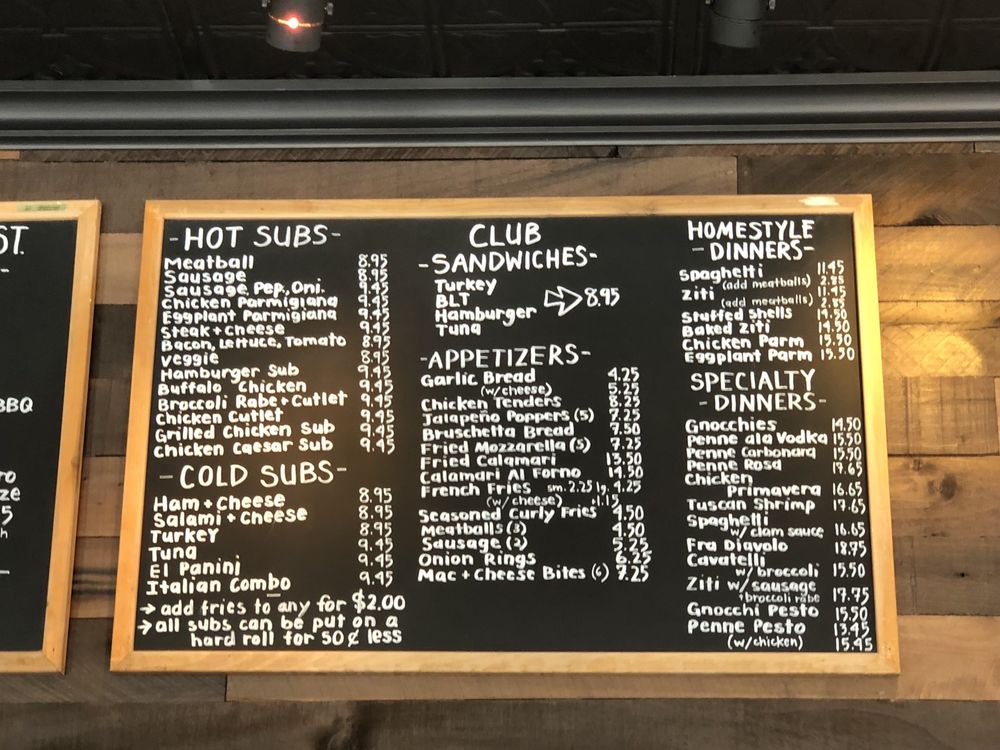 ST.
BBQ
- HOT SUBS -
Meatball 8.95
Sausage 8.95
Sausage, Pep, Oni. 9.45
Chicken Parmigiana 9.45
Eggplant Parmigiana 9.45
Steak + Cheese 9.45
Bacon, Lettuce, Tomato 8.95
Veggie 8.95
Hamburger Sub 9.45
Buffalo Chicken 9.45
Broccoli Rabe + Cutlet 9.45
Chicken Cutlet 9.45
Grilled Chicken Sub 9.45
Chicken Caesar Sub 9.45
- COLD SUBS -
Ham + Cheese 8.95
Salami + Cheese 8.95
Turkey 8.95
Tuna 9.45
El Panini 9.45
Italian Combo 9.45
→ add fries to any for $2.00
→ all subs can be put on a
hard roll for 50¢ less
CLUB
- SANDWICHES -
Turkey
BLT 8.95
Hamburger
Tuna
- APPETIZERS -
Garlic Bread 4.25
(w/cheese) 5.25
Chicken Tenders 8.25
Jalapeño Poppers (5) 7.25
Bruschetta Bread 7.50
Fried Mozzarella (5) 7.25
Fried Calamari 13.50
Calamari Al Forno 14.50
French Fries sm. 2.25 lg. 4.25
(w/cheese) +1.15
Seasoned Curly Fries 4.50
Meatballs (3) 4.50
Sausage (3) 5.25
Onion Rings 6.25
Mac + Cheese Bites (6) 7.25
HOMESTYLE
- DINNERS -
Spaghetti 11.45
(add meatballs) 2.85
Ziti 11.45
(add meatballs) 2.85
Stuffed Shells 14.50
Baked Ziti 14.50
Chicken Parm 15.50
Eggplant Parm 15.50
SPECIALTY
- DINNERS -
Gnocchies 14.50
Penne ala Vodka 15.50
Penne Carbonara 15.50
Penne Rosa 17.65
Chicken
Primavera 16.65
Tuscan Shrimp 17.65
Spaghetti
w/ clam sauce 16.65
Fra Diavolo 18.75
Cavatelli
w/ broccoli 15.50
Ziti w/ sausage
+ broccoli rabe 17.75
Gnocchi Pesto 15.50
Penne Pesto 13.45
(w/chicken) 15.45